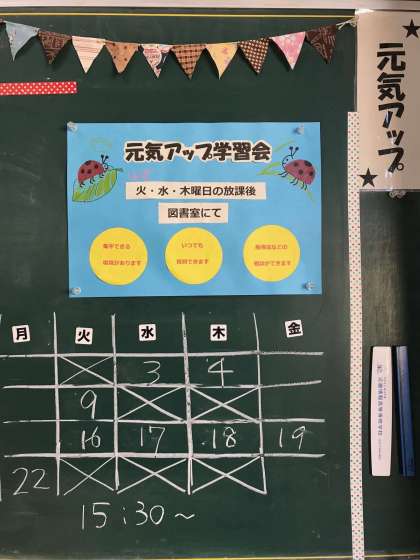 元気アップ学習会
火・水・木曜日の放課後
図書室にて
集中できる
環境があります
いつでも
質問できます
勉強法などの
相談ができます
元気アップ
月 火 水 木 金
3 4
9
16 17 18 19
22
15:30~